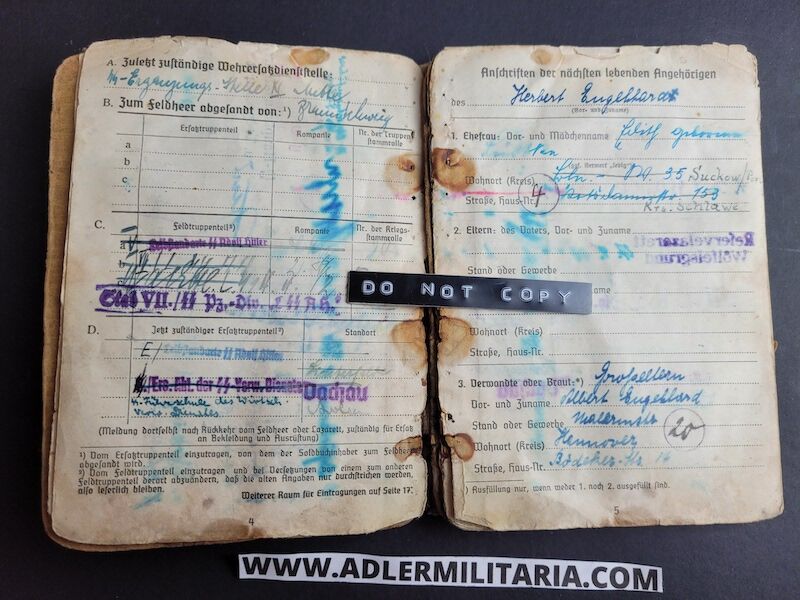 A. Zuletzt zuständige Wehrersatzdienststelle:
B. Zum Feldheer abgesandt von:¹) Braunschweig
Ersatztruppenteil Kompanie Nr. der Truppenstammrolle
a
b
c
C. Feldtruppenteil²) Kompanie Nr. der Kriegsstammrolle
a Leibstandarte SS Adolf Hitler
b
Stab VII./SS Pz.-Div. "LSSAH"
D. Jetzt zuständiger Ersatztruppenteil²) Standort
Leibstandarte SS Adolf Hitler
Ers. Abt. der SS-Verw. Dienste Dachau
(Meldung dortselbst nach Rückkehr vom Feldheer oder Lazarett, zuständig für Ersatz
an Bekleidung und Ausrüstung)
¹) Vom Ersatztruppenteil einzutragen, von dem der Soldbuchinhaber zum Feldheer
abgesandt wird.
²) Vom Feldtruppenteil einzutragen und bei Versetzungen von einem zum anderen
Feldtruppenteil derart abzuändern, daß die alten Angaben nur durchstrichen werden,
also leserlich bleiben.
Weiterer Raum für Eintragungen auf Seite 17.
4
Anschriften der nächsten lebenden Angehörigen
des Herbert Engelhardt
(Vor- und Zuname)
1. Ehefrau: Vor- und Mädchenname Edith geborene
(ggf. Vermerk „ledig“)
Wohnort (Kreis) Bln. - NW 35 Suckow/Pom.
Straße, Haus-Nr. 4 153
Krs. Schlawe
2. Eltern: des Vaters, Vor- und Zuname
Reservelazarett
Wölfelsgrund
Stand oder Gewerbe
DO NOT COPY
Wohnort (Kreis)
Straße, Haus-Nr.
3. Verwandte oder Braut:*) Großeltern
Vor- und Zuname Albert Engelhard
Stand oder Gewerbe Malermstr
Wohnort (Kreis) Hannover 20
Straße, Haus-Nr. Bödeker-Str. 14
*) Ausfüllung nur, wenn weder 1. noch 2. ausgefüllt sind.
5
WWW.ADLERMILITARIA.COM